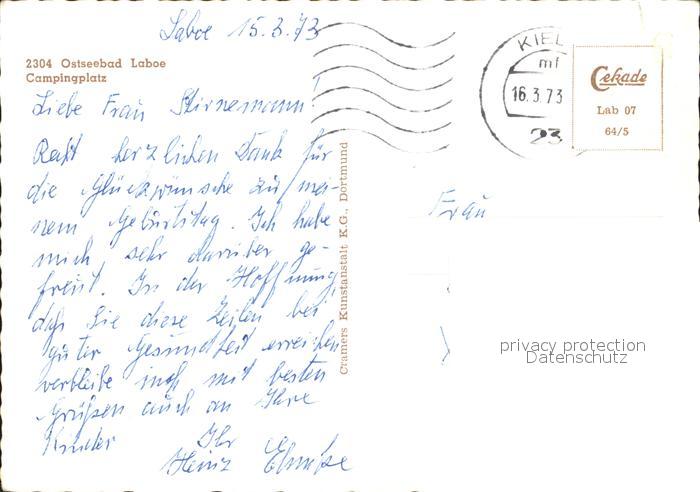 Laboe 15.3.73
2304 Ostseebad Laboe
Campingplatz
Liebe Frau Stirnemann!
Recht herzlichen Dank für
die Glückwünsche zu mei-
nem Geburtstag. Ich habe
mich sehr darüber ge-
freut. In der Hoffnung,
daß Sie diese Zeilen bei
guter Gesundheit erreichen
verbleibe ich mit besten
Grüßen auch an Ihre
Kinder
Ihr
Heinz
Cramers Kunstanstalt K.G., Dortmund
KIEL
mf
16.3.73
23
Cekade
Lab 07
64/5
Frau
privacy protection
Datenschutz